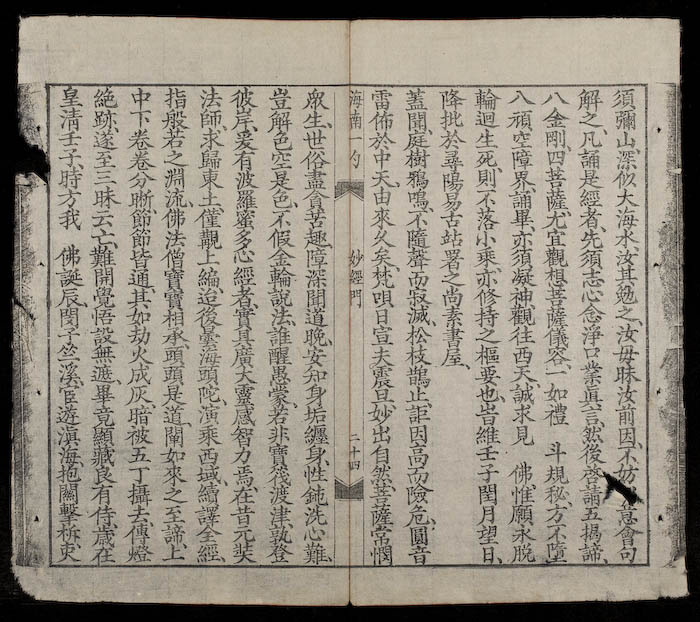 須彌山深似大海水汝其勉之汝毋昧汝前因不妨意會句
解之凡誦是經者先須志心念淨口業眞言然後啓請五揭諦
八金剛四菩薩尤宜觀想菩薩儀容一如禮 斗規秘方不墮
八頑空障界誦畢亦須凝神觀往西天誠求見 佛惟願永脫
輪迴生死則不落小乘亦修持之樞要也旹維壬子閏月望日
降批於尋陽易古站署之尚素書屋
蓋聞庭樹鴉鳴不隨聲而寂滅松枝鵲止詎因高而險危圓音
雷佈於中天由來久矣梵唄日宣夫震旦妙出自然菩薩常憫
海南一勺 妙經門 二十四
眾生世俗盡貪苦趣障深聞道晚安知身垢纏身性鈍洗心難
豈解色空是色不假金輪說法誰醒愚蒙若非寶筏渡津孰登
彼岸爰有波羅蜜多心經者實具廣大靈感智力焉在昔元奘
法師求歸東土僅觀上編迨後曇海頭陀演乘西域續譯全經
指般若之淵流佛法僧寶寶相承頭頭是道闡如來之至諦上
中下卷卷分晰節節皆通其如劫火成灰暗被五丁攝去傳燈
絕跡遂至三昧云亡難開覺悟設無遮畢竟顯藏良有侍歲在
皇清壬子時方我 佛誕辰閩子竺溪宦遊滇海抱關擊柝吏